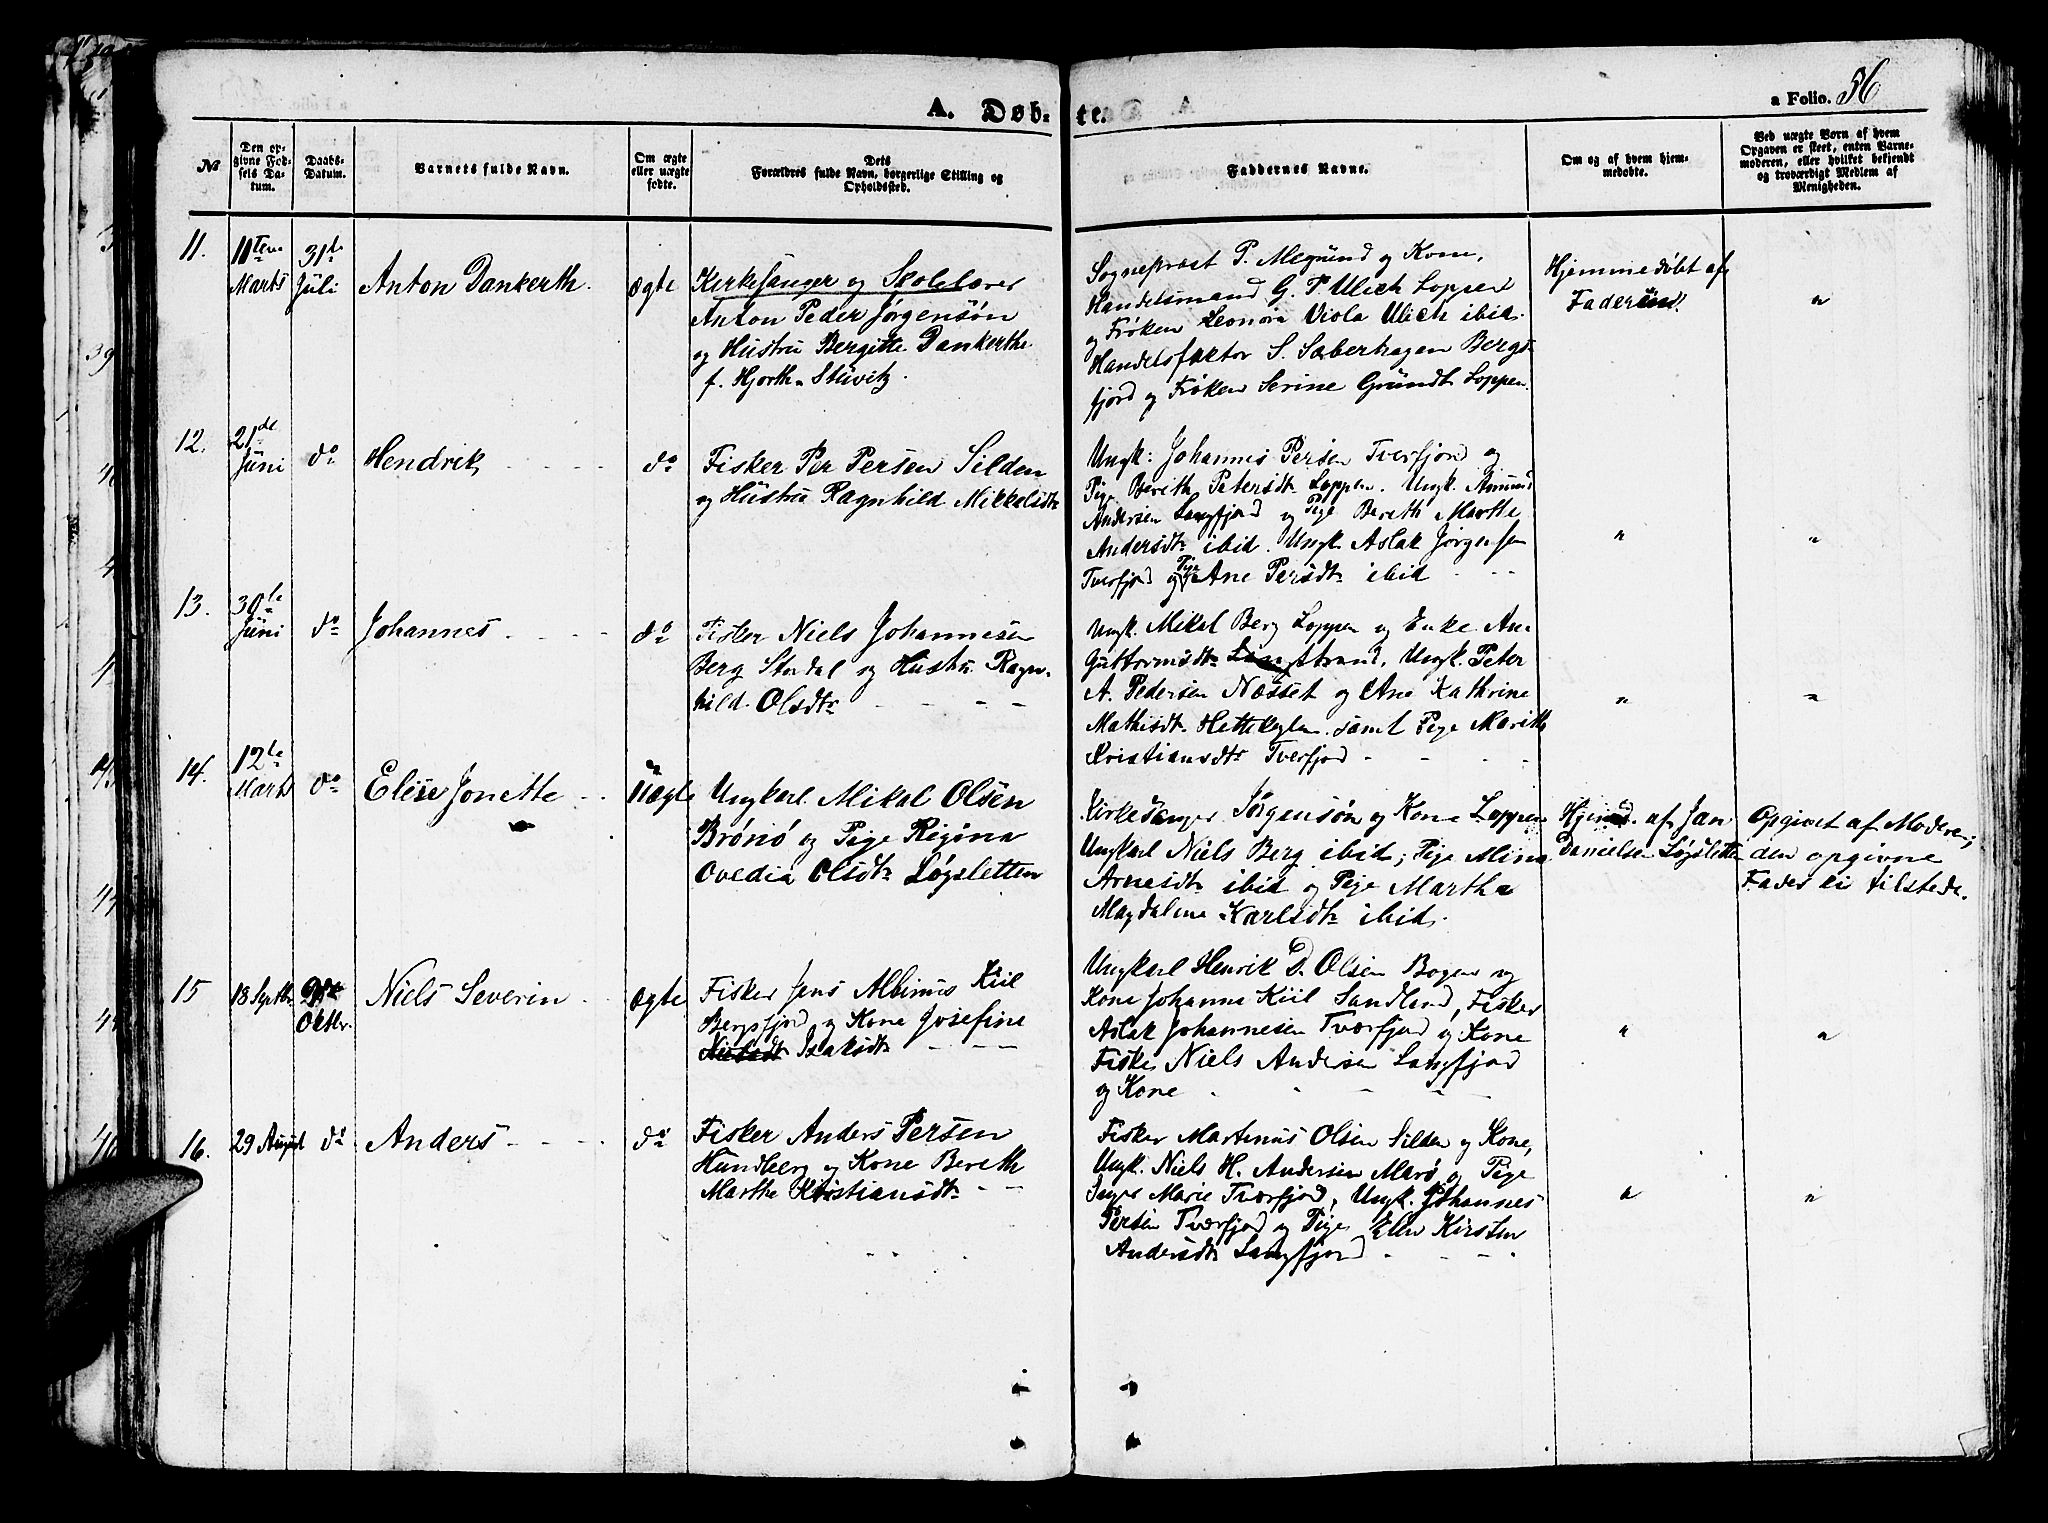 a Folio. 56
A. Døb- te.
№
Den opgivne Fødsels Datum.
Daabs-Datum.
Barnets fulde Navn.
Om ægte eller uægte fødte.
Dets Forældres fulde Navn, borgerlige Stilling og Opholdssted.
Faddernes Navne.
Om og af hvem hjemmedøbte.
Ved uægte Børn af hvem Opgaven er skeet, enten Barnemoderen, eller hvilket bekjendt og troværdigt Medlem af Menigheden.
11.
11Ten Marts
31te Juli
Anton Dankerth.
ægte
Kirkesanger og Skolelærer
Anton Peder Jørgensøn
og Hustru Bergitte Dankerthe
f. Hjorth-Stüvitz.
Sognepræst P. og Kone,
Handelsmand G. P. Ulich Loppen
og Frøken Leonora Viola Ulich ibid.
Handelsfaktor S. Saberhagen Bergs-
fjord og Frøken Serine Gründt Loppen.
Hjemmedøbt af
Faderen.
"
12.
21de Juni
do
Hendrik
do
Fisker Per Persen Silden
og Hustru Ragnhild Mikkelsdtr
Ungk: Johannes Persen Tverfjord og
Pige Berith Petersdtr Loppen. Ungk. Amund
Andersen Langfjord og Pige Bereth Marthe
Andersdtr ibid. Ungk Aslak Jørgensen
Tverfjord og Pige Ane Persdtr ibid
"
"
13.
30te Juni
do
Johannes
do
Fisker Niels Johannesen
Berg Stordal og Hustru Ragn-
hild Olsdtr
Ungk. Mikal Berg Loppen og Enke An
Guttormsdtr Langstrand, Ungk. Peter
A. Pedersen Næsset og Ane Kathrine
Mathisdtr samt Pige Marith
Kristiansdtr Tverfjord
"
"
14.
12te Marts
do
Elise Jonette
uægte
Ungkarl Mikal Olsen
Brønø og Pige Regina
Ovedia Olsdtr Løgsletten
Kirkesanger Jørgensøn og Kone Loppen
Ungkarl Niels Berg ibid; Pige Mina
Arnesdtr ibid og Pige Martha
Magdalene Karlsdtr ibid.
Hjemd. af Jan
Danielsen Løgsletten
Opgivet af Moderen;
den opgivne
Fader ei tilstede.
15
18 Septbr
Oktbr.
Niels Severin
ægte
Fisker Jens Albinus Kiil
Bergsfjord og Kone Josefine
Nielsdt Isaksdtr
Ungkarl Henrik D. Olsen Bogen og
Kone Johanna Kiil Sandland, Fisker
Aslak Johannesen Tværfjord og Kone
Fisker Niels Andersen Langfjord
og Kone
"
"
16.
29 August
do
Anders
do
Fisker Anders Persen
Hundberg og Kone Bereth
Marthe Kristiansdtr
Fisker Martinus Olsen Silden og Kone,
Ungk. Niels H. Andersen Marø og Pige
Inger Marie Tværfjord, Ungk. Johannes
Persen Tværfjord og Pige Elen Kirsten
Andersdtr Langfjord
"
"